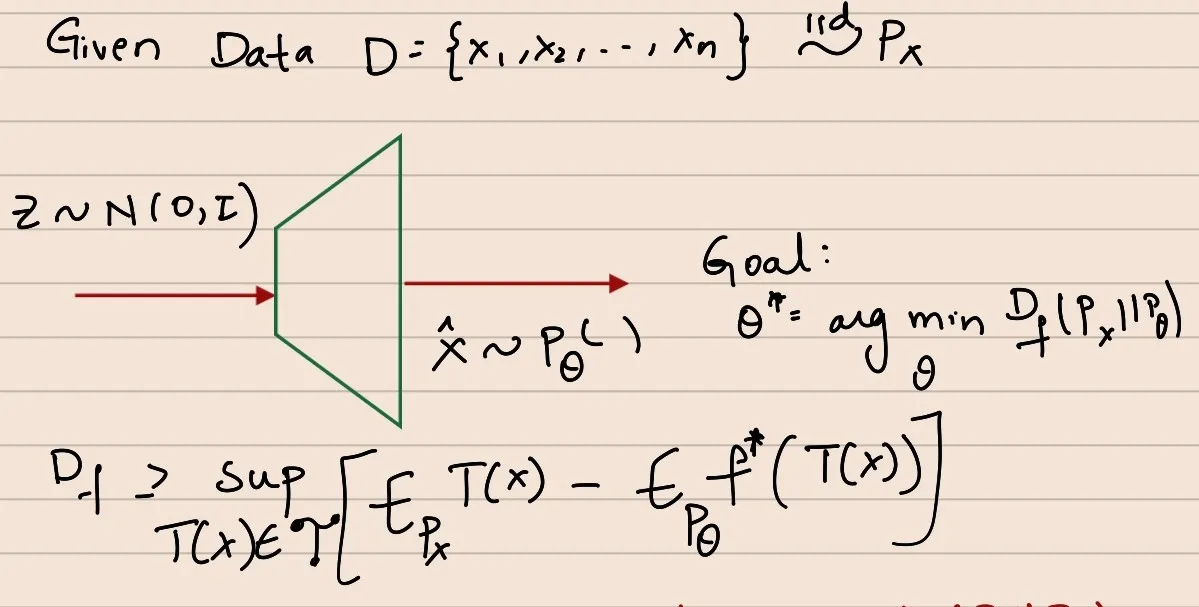 Given Data D = {x₁, x₂, . . , xₙ} iid ~ Pₓ
Z ~ N(0, I)
x̂ ~ P_θ( )
Goal:
θ* = arg min_θ D_f(Pₓ||P_θ)
D_f ≥ sup_{T(x)∈𝒯} [E_{Pₓ} T(x) - E_{P_θ} f*(T(x))]